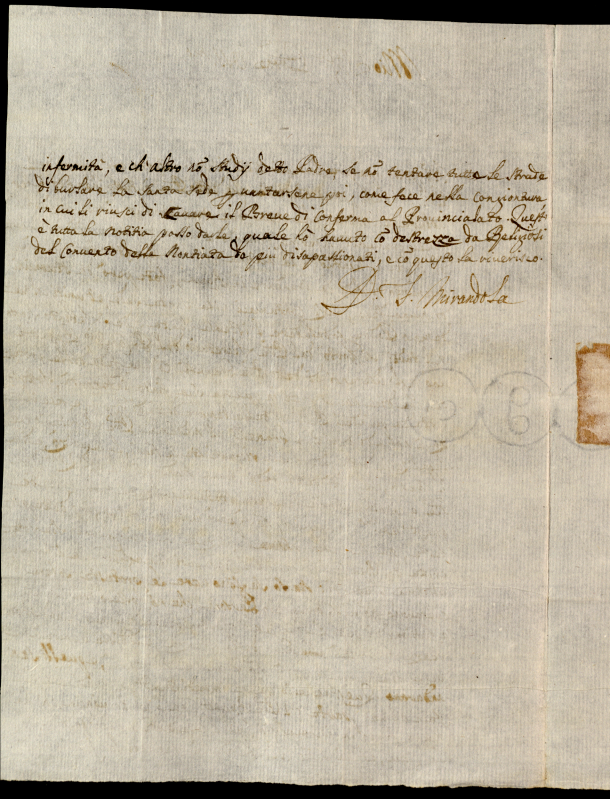 infermità, e ch'altro nõ studij detto Padre, se nõ tentare tutte le strade
di burlare la Santa Sede, e vantarsene poi, come fece nella congiontura
in cui li riuscì di cavare il Breve di Conferma al Provincialato. Questo
è tutta la notitia posso darle, quale hò havuto cõ destrezza da Religiosi
del Convento della Nontiata da più disapassionati, e cõ questo la riverisco.
D. F. Mirandola